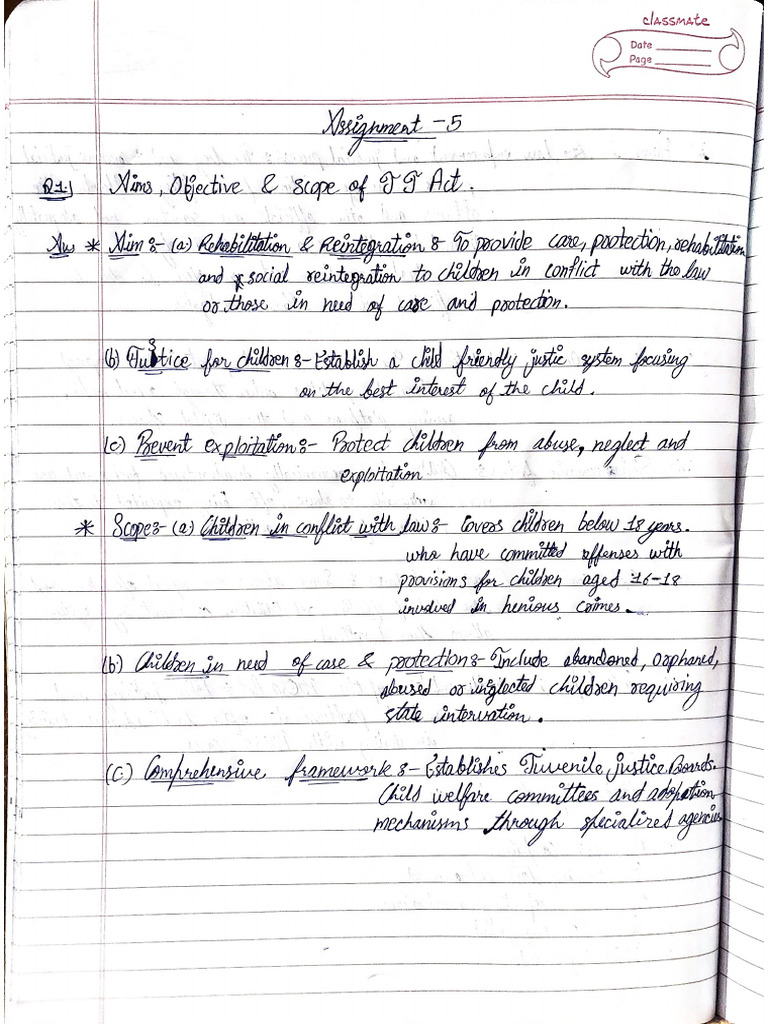 classmate
Date
Page
Assignment - 5
Q1.) Aims, Objective & scope of JJ Act.
Ans * Aim :- (a) Rehabilitation & Reintegration :- To provide care, protection, rehabilitation
and social reintegration to children in conflict with the law
or those in need of care and protection.
(b) Justice for children :- Establish a child friendly justic system focusing
on the best interest of the child.
(c) Prevent exploitation :- Protect children from abuse, neglect and
exploitation
* Scope :- (a) Children in conflict with law :- Covers children below 18 years.
who have committed offenses with
provisions for children aged 16-18
involved in henious crimes.
(b) Children in need of care & protection :- Include abandoned, orphaned,
abused or neglected children requiring
state intervation.
(c) Comprehensive framework :- Establishes Juvenile justice Boards.
Child welfare committees and adoption
mechanisms through specialized agencies